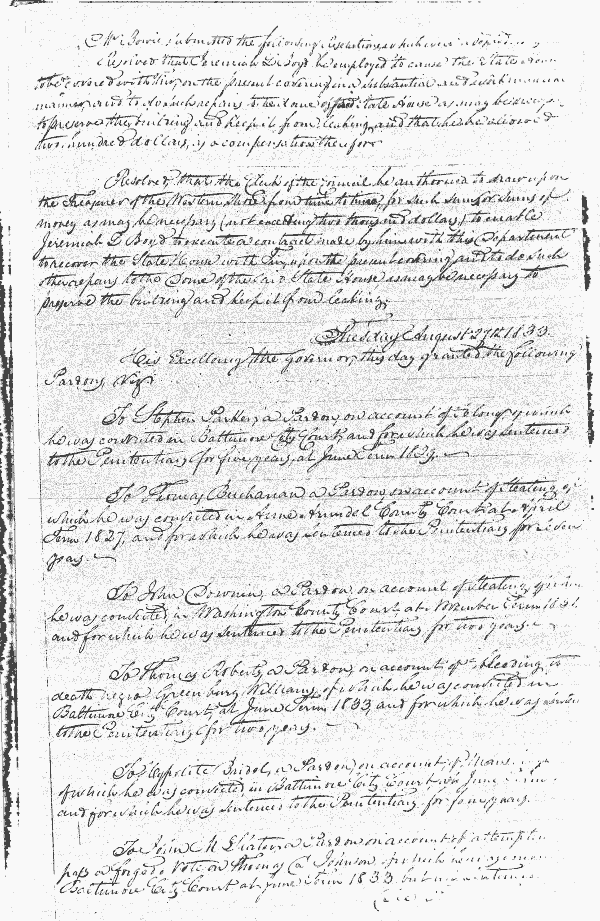 Mr Bowie submitted the following Resolutions which were adopted
Resolved that Jeremiah L Boyd be employed to cause the State
to be covered with Tin, on the present covering in a substantial and
manner, and to do such repairs to the dome of said State House as may be
to preserve the building and keep it from leaking, and that he be allowed
two hundred dollars, as a compensation therefor
Resolved, that the Clerk of the Council be authorised to draw upon
the Treasurer of the Western Shore from time to time, for such sum or sums of
money as may be necessary (not exceeding two thousand dollars) to enable
Jeremiah L Boyd to execute a contract made by him with this Department
to recover the State House with Tin, upon the present covering and to do such
other repairs to the Dome of the said State House as may be necessary to
preserve the building and keep it from leaking.
Tuesday August 27th 1833.
His Excellency the Governor, this day granted the following
Pardons, Viz:
To Stephen Parker, a Pardon, on account of felony, of which
he was convicted in Baltimore City Court, and for which he was sentenced
to the Penitentiary for five years, at June Term
To Thomas Buchanan a Pardon, on account of stealing, of
which he was convicted in Anne Arundel County Court at April
Term 1827, and for which he was sentenced to the Penitentiary for
years.
To John Downin, a Pardon, on account of stealing, of
he was convicted in Washington County Court at November Term 1831.
and for which he was sentenced to the Penitentiary for two years.
To Thomas Roberts, a Pardon, on account of bleeding to
death negro Greenbury Williams, of which he was convicted in
Baltimore City Court, at June Term 1833, and for which he was
to the Penitentiary for two years.
To Hypolite Bridel, a Pardon, on account of
of which he was convicted in Baltimore City Court, at June
and for which he was sentenced to the Penitentiary for four years.
To John M a Pardon on account of
pass a forged note on Thomas Johnson of which he
Baltimore City Court at June Term 1833 but